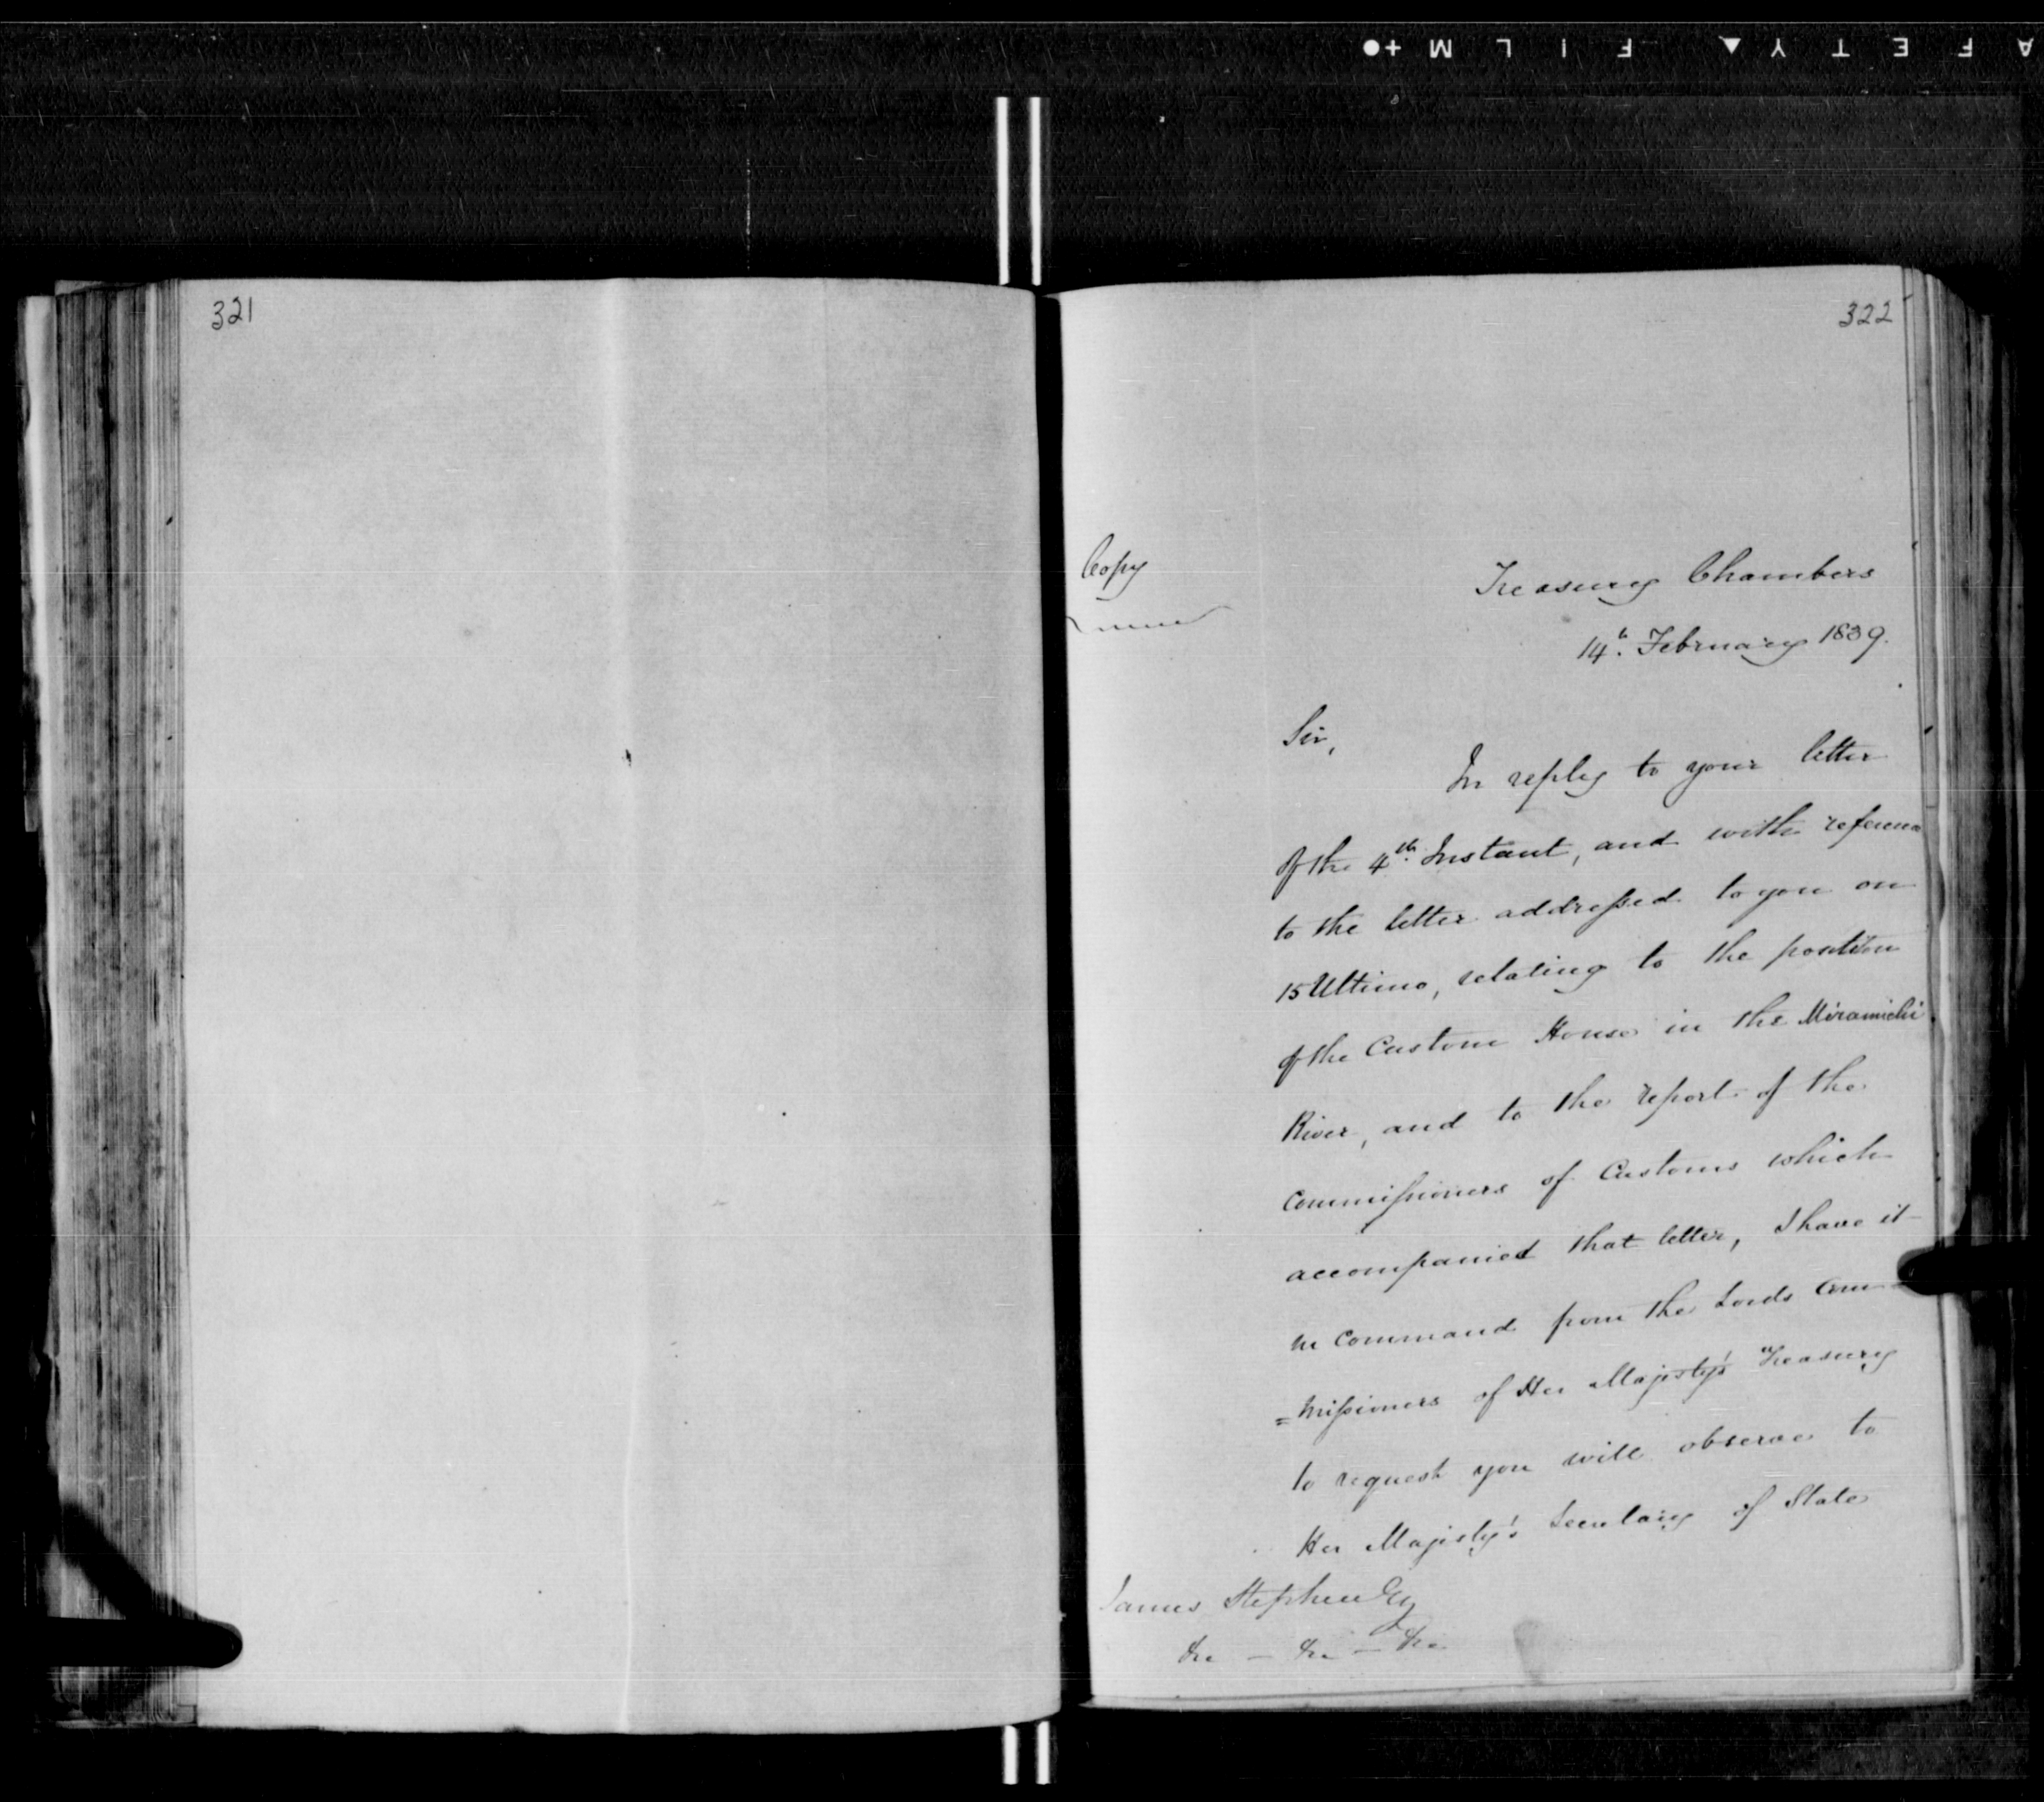 AFETY▲FILM+●
321
322
Copy
Treasury Chambers
14th. February 1839.
Sir,
In reply to your letter
Of the 4th. Instant, and with reference
to the letter addressed to you on
15 Ultimo, relating to the position
of the Custom House in the Miramichi
River, and to the report of the
Commissioners of Customs which
accompanied that letter, I have it
in Command from the Lords Com
=missioners of Her Majesty's Treasury
to request you will observe to
Her Majesty's Secretary of State
James Stephen Esq
&c — &c — &c